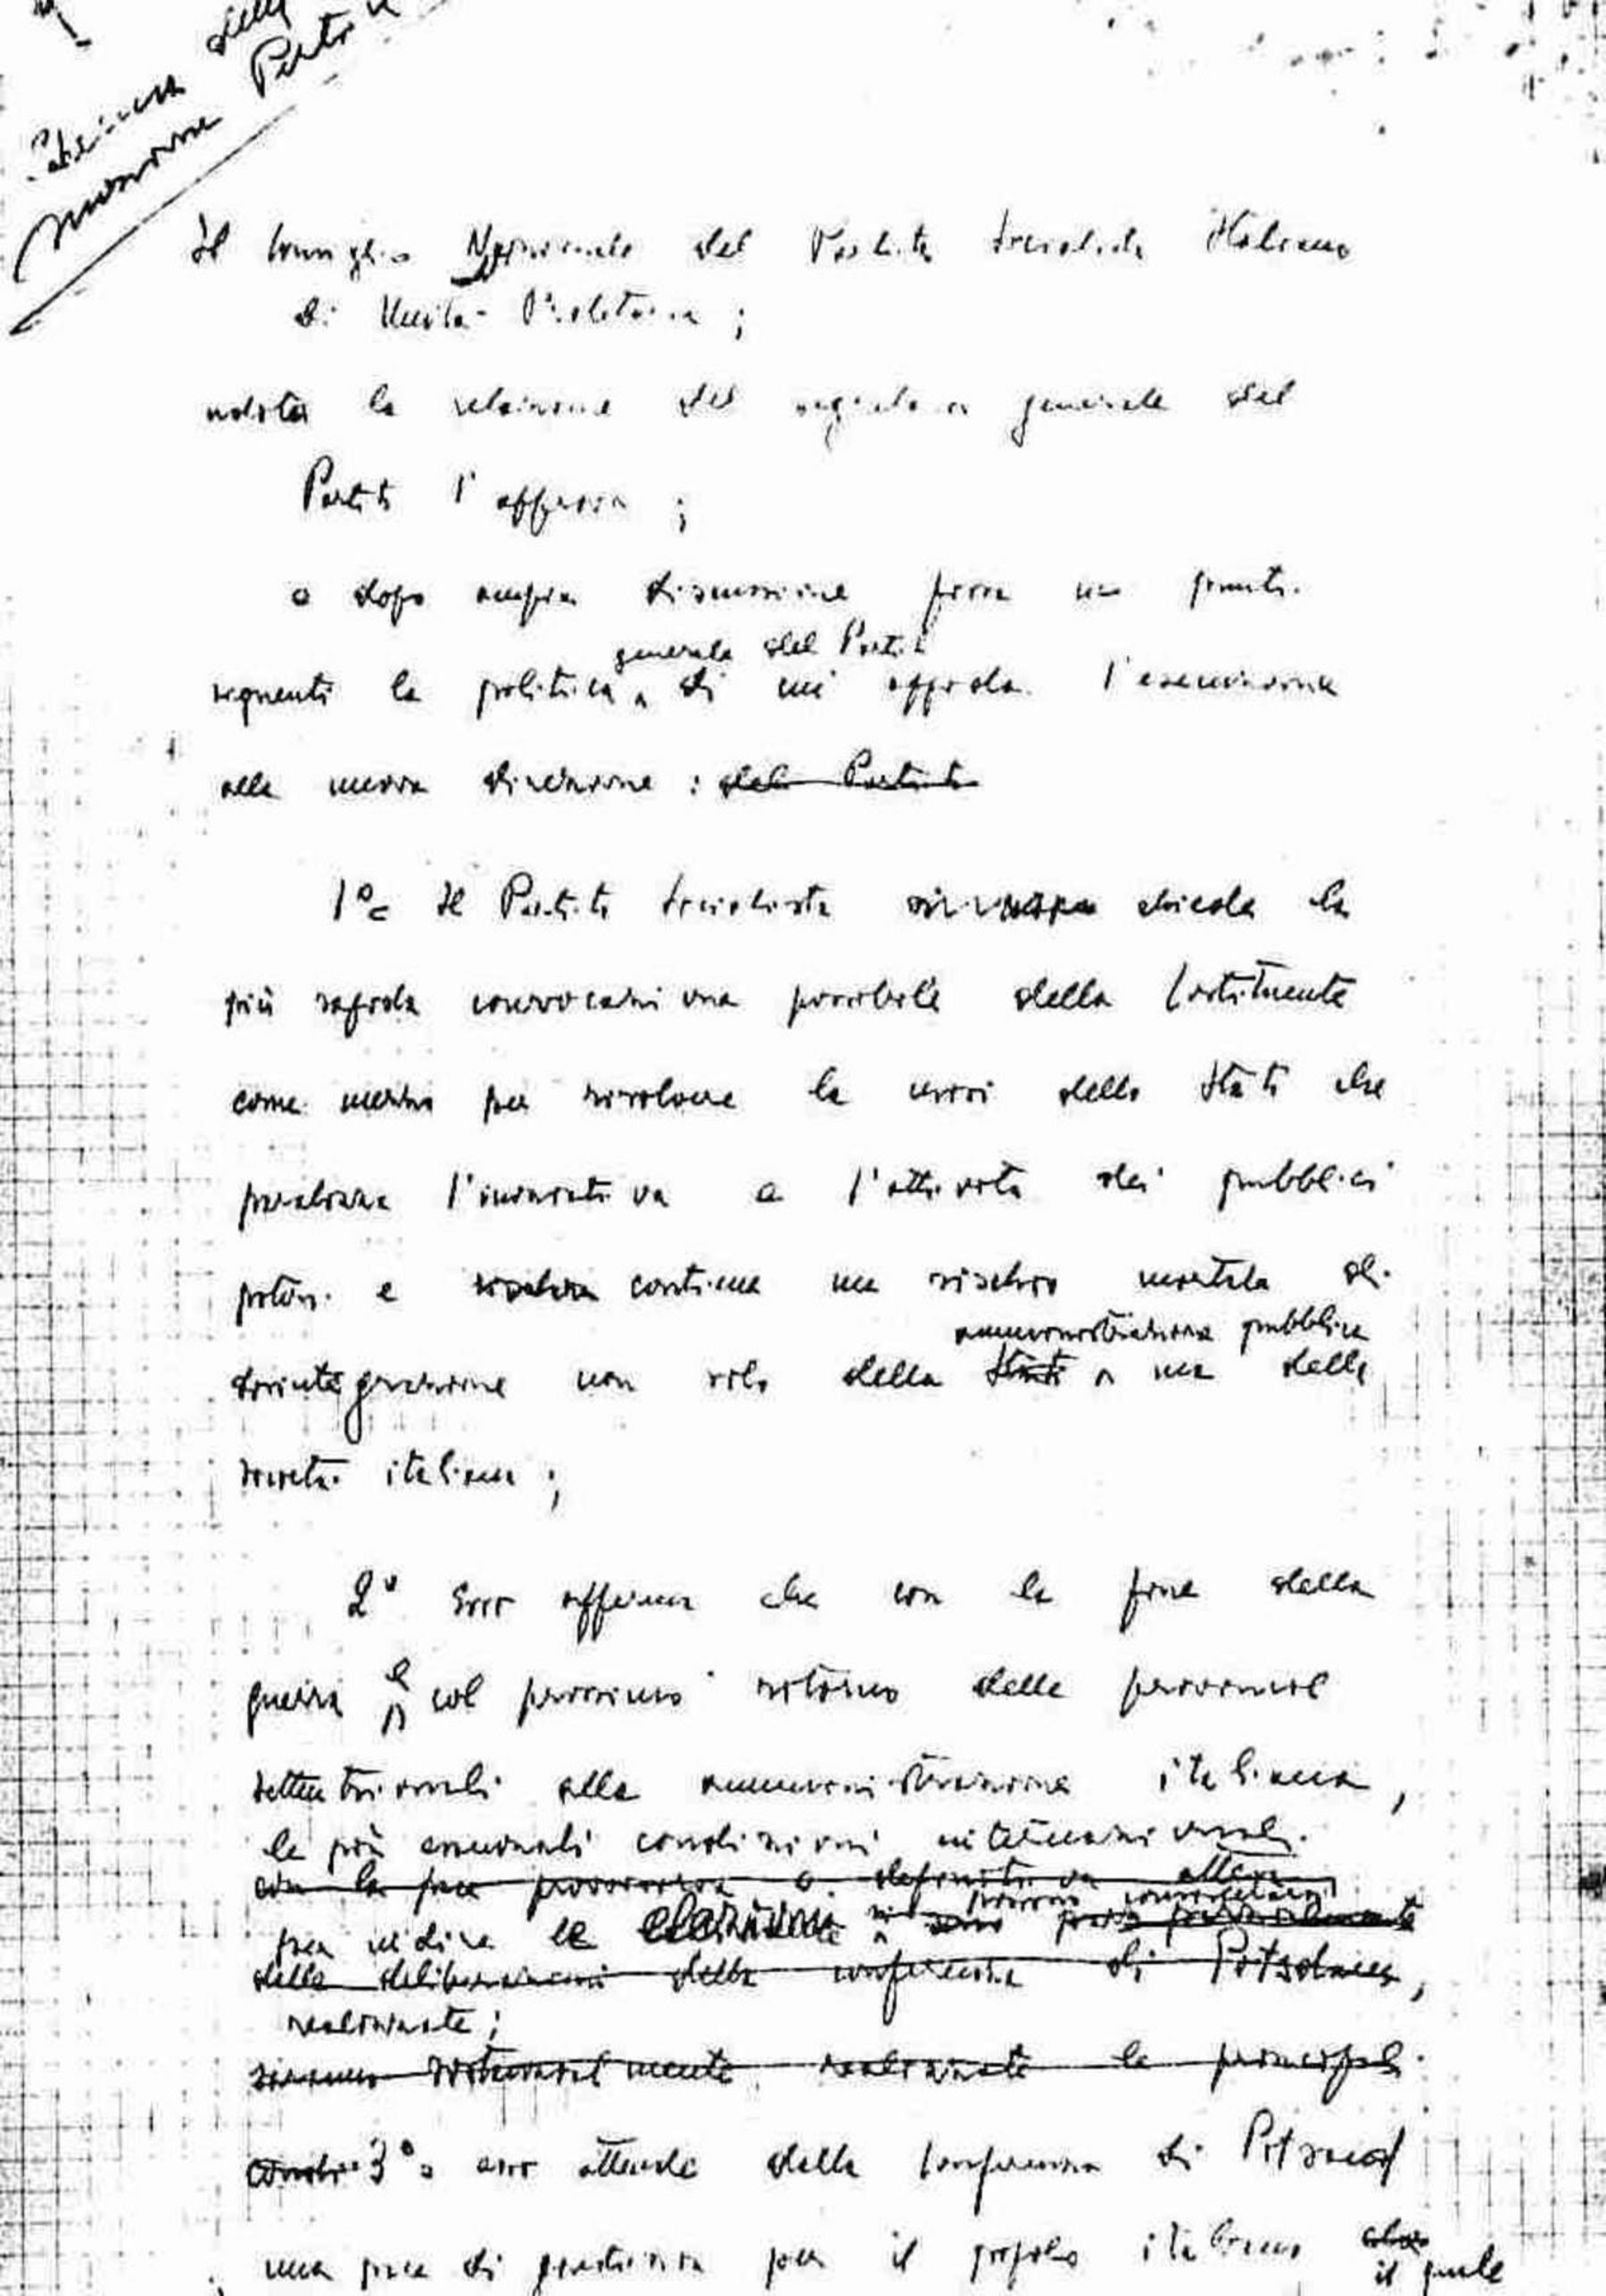 della
mozione Pertini
Il Consiglio Nazionale del Partito Socialista Italiano
di Unità Proletaria ;
udita la relazione del segretario generale del
Partito l'approva ;
e dopo ampia discussione fissa nei punti
generale del Partito
seguenti la politica di cui affida l'esecuzione
alla nuova direzione : del Partito
1° = Il Partito Socialista chiede la
più rapida convocazione possibile della Costituente
come mezzo per risolvere la crisi dello Stato che
paralizza l'iniziativa e l'attività dei pubblici
poteri e rischia contiene un rischio mortale di
amministrazione pubblica
disintegrazione non solo della Stato ma della
società italiana ;
2° Esso afferma che con la fine della
guerra e col prossimo ritorno delle provincie
settentrionali alla amministrazione italiana,
le più essenziali condizioni internazionali
con la pace provvisoria o definitiva
per indire le elezioni
delle deliberazioni della conferenza di Potsdam,
realizzate ;
saranno sostanzialmente realizzate le principali
condi 3° = esso attende dalla Conferenza di Potsdam
una pace di giustizia per il popolo italiano che
il quale